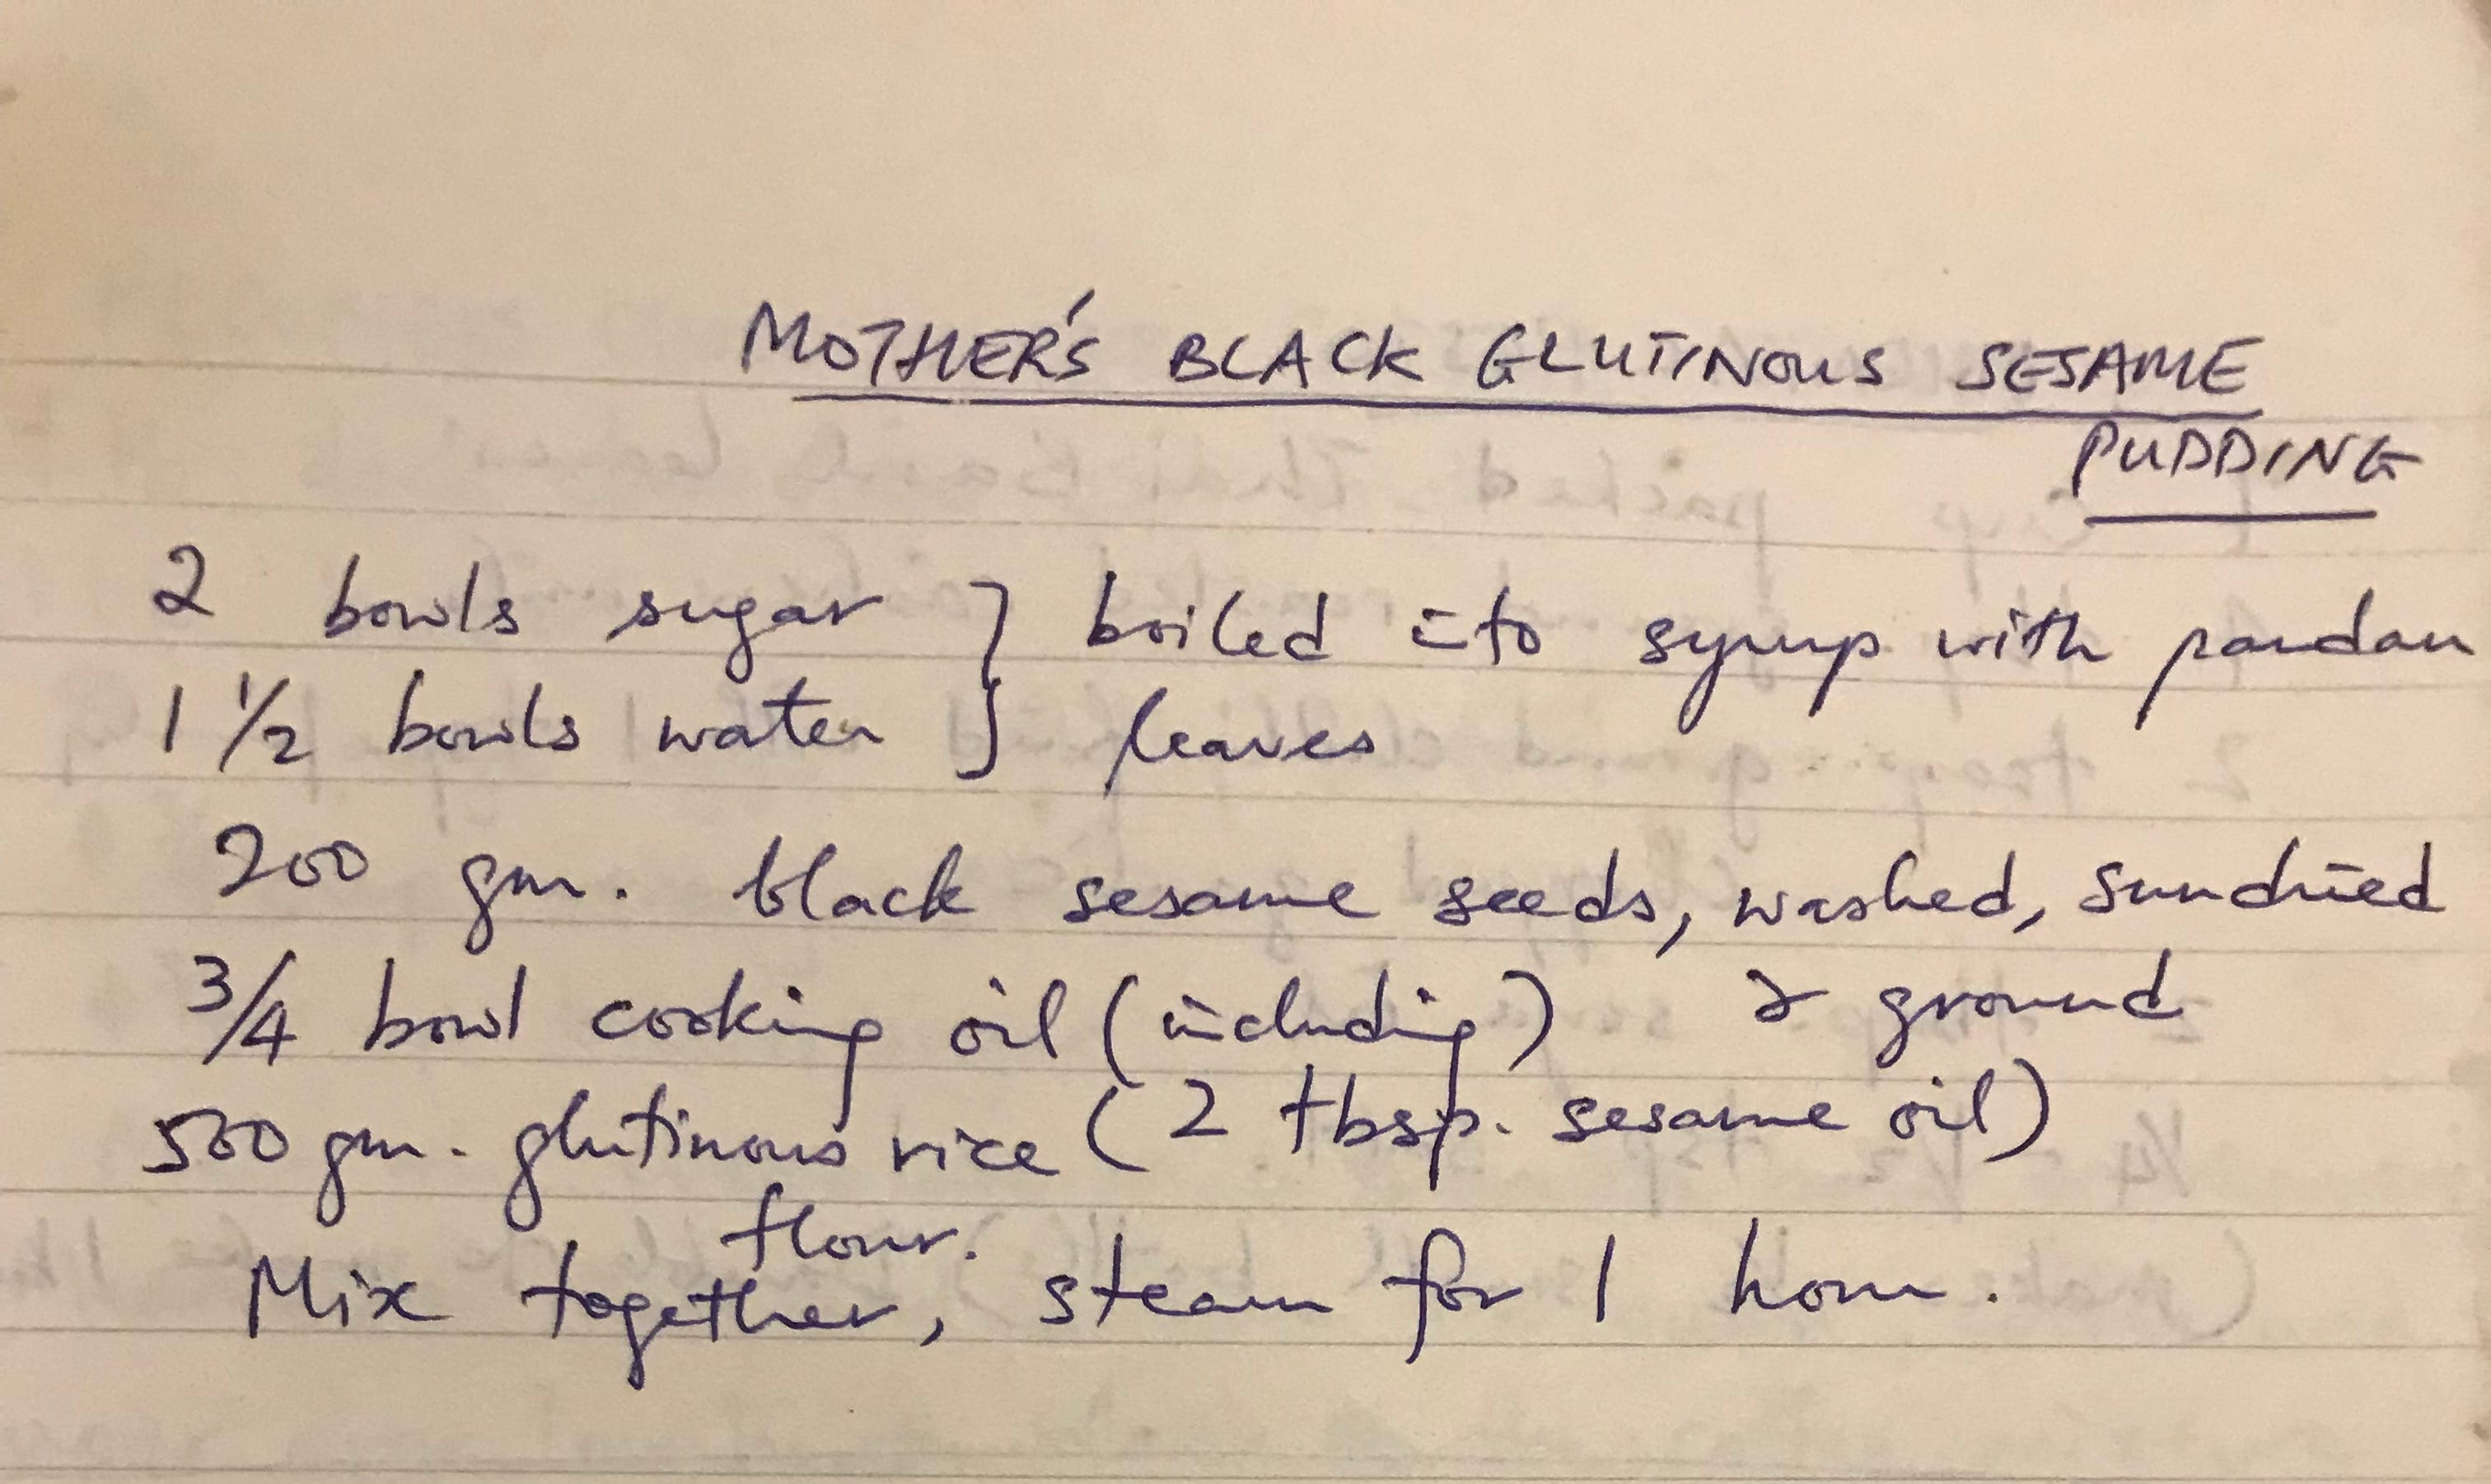 MOTHER'S BLACK GLUTINOUS SESAME
PUDDING
2 bowls sugar } boiled into syrup with pandan
1 1/2 bowls water } leaves
200 gm. black sesame seeds, washed, sundried
3/4 bowl cooking oil (including) & ground
500 gm. glutinous rice (2 tbsp. sesame oil)
flour.
Mix together, steam for 1 hour.